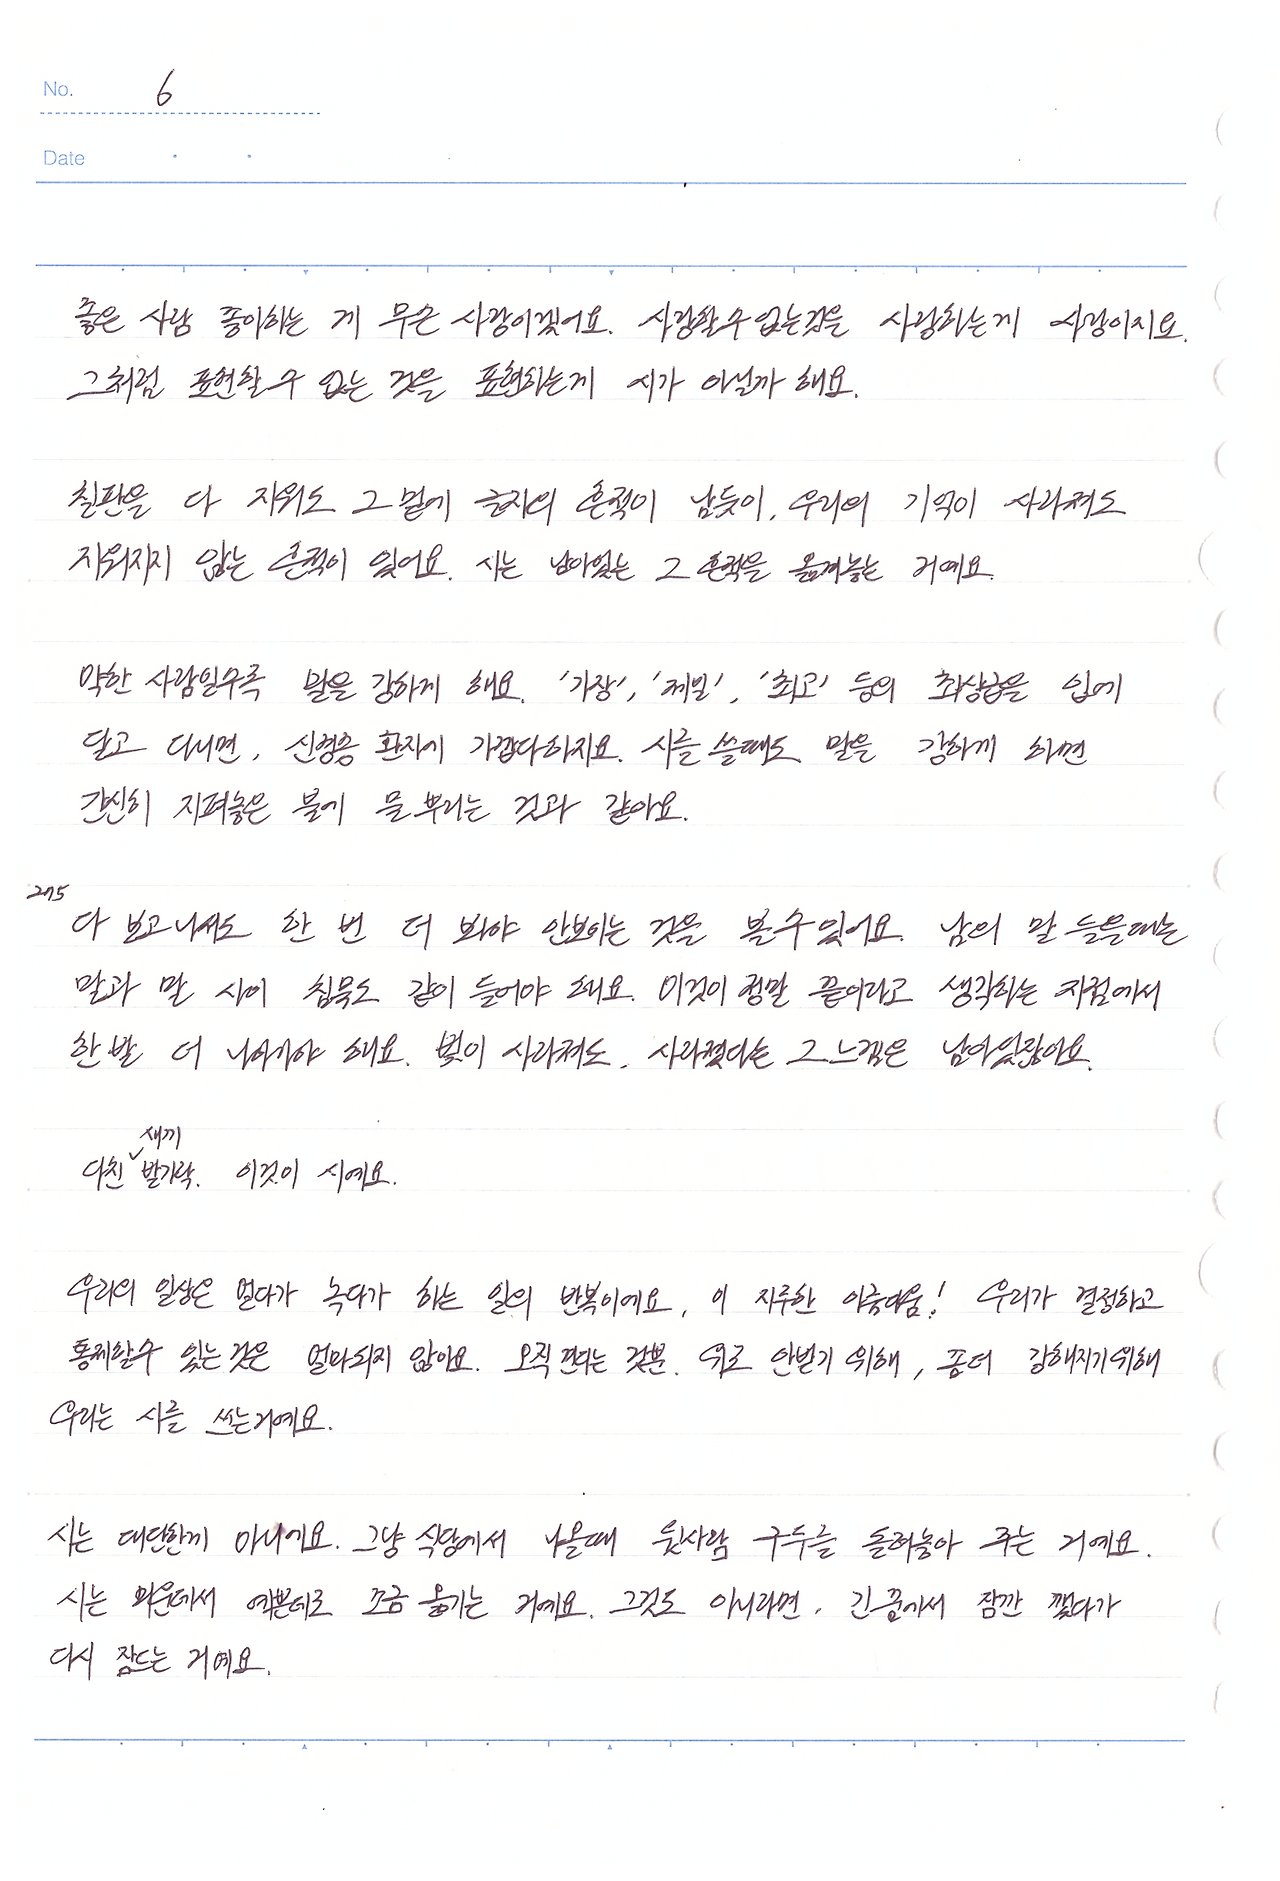 No. 6
Date
좋은 사람 좋아하는 게 무슨 사랑이겠어요. 사랑할수 없는것을 사랑하는게 사랑이지요.
그처럼 표현할 수 없는 것을 표현하는게 시가 아닐까 해요.
칠판을 다 지워도 그 밑에 글자의 흔적이 남듯이, 우리의 기억이 사라져도
지워지지 않는 흔적이 있어요. 시는 남아있는 그 흔적을 옮겨놓는 거예요.
약한 사람일수록 말을 강하게 해요. '가장', '제일', '최고' 등의 최상급을 입에
달고 다니면, 신경증 환자에 가깝다 하지요. 시를 쓸때도 말을 강하게 하면
간신히 지펴놓은 불에 물 뿌리는 것과 같아요.
275
다 보고 나서도 한 번 더 봐야 안보이는 것을 볼 수 있어요. 남의 말 들을때는
말과 말 사이 침묵도 같이 들어야 해요. 이것이 정말 끝이라고 생각하는 지점에서
한 발 더 나아가야 해요. 빛이 사라져도, 사라졌다는 그 느낌은 남아 있잖아요.
새끼
다친 발가락. 이것이 시예요.
우리의 일상은 얼다가 녹다가 하는 일의 반복이에요, 이 지루한 아름다움! 우리가 결정하고
통제할수 있는 것은 얼마되지 않아요. 오직 견디는 것뿐. 위로 안받기 위해, 좀더 강해지기 위해
우리는 시를 쓰는거예요.
시는 대단한게 아니에요. 그냥 식당에서 나올때 뒷사람 구두를 돌려놓아 주는 거예요.
시는 미운데서 예쁜데로 조금 옮기는 거예요. 그것도 아니라면, 긴 꿈에서 잠깐 깼다가
다시 잠드는 거예요.